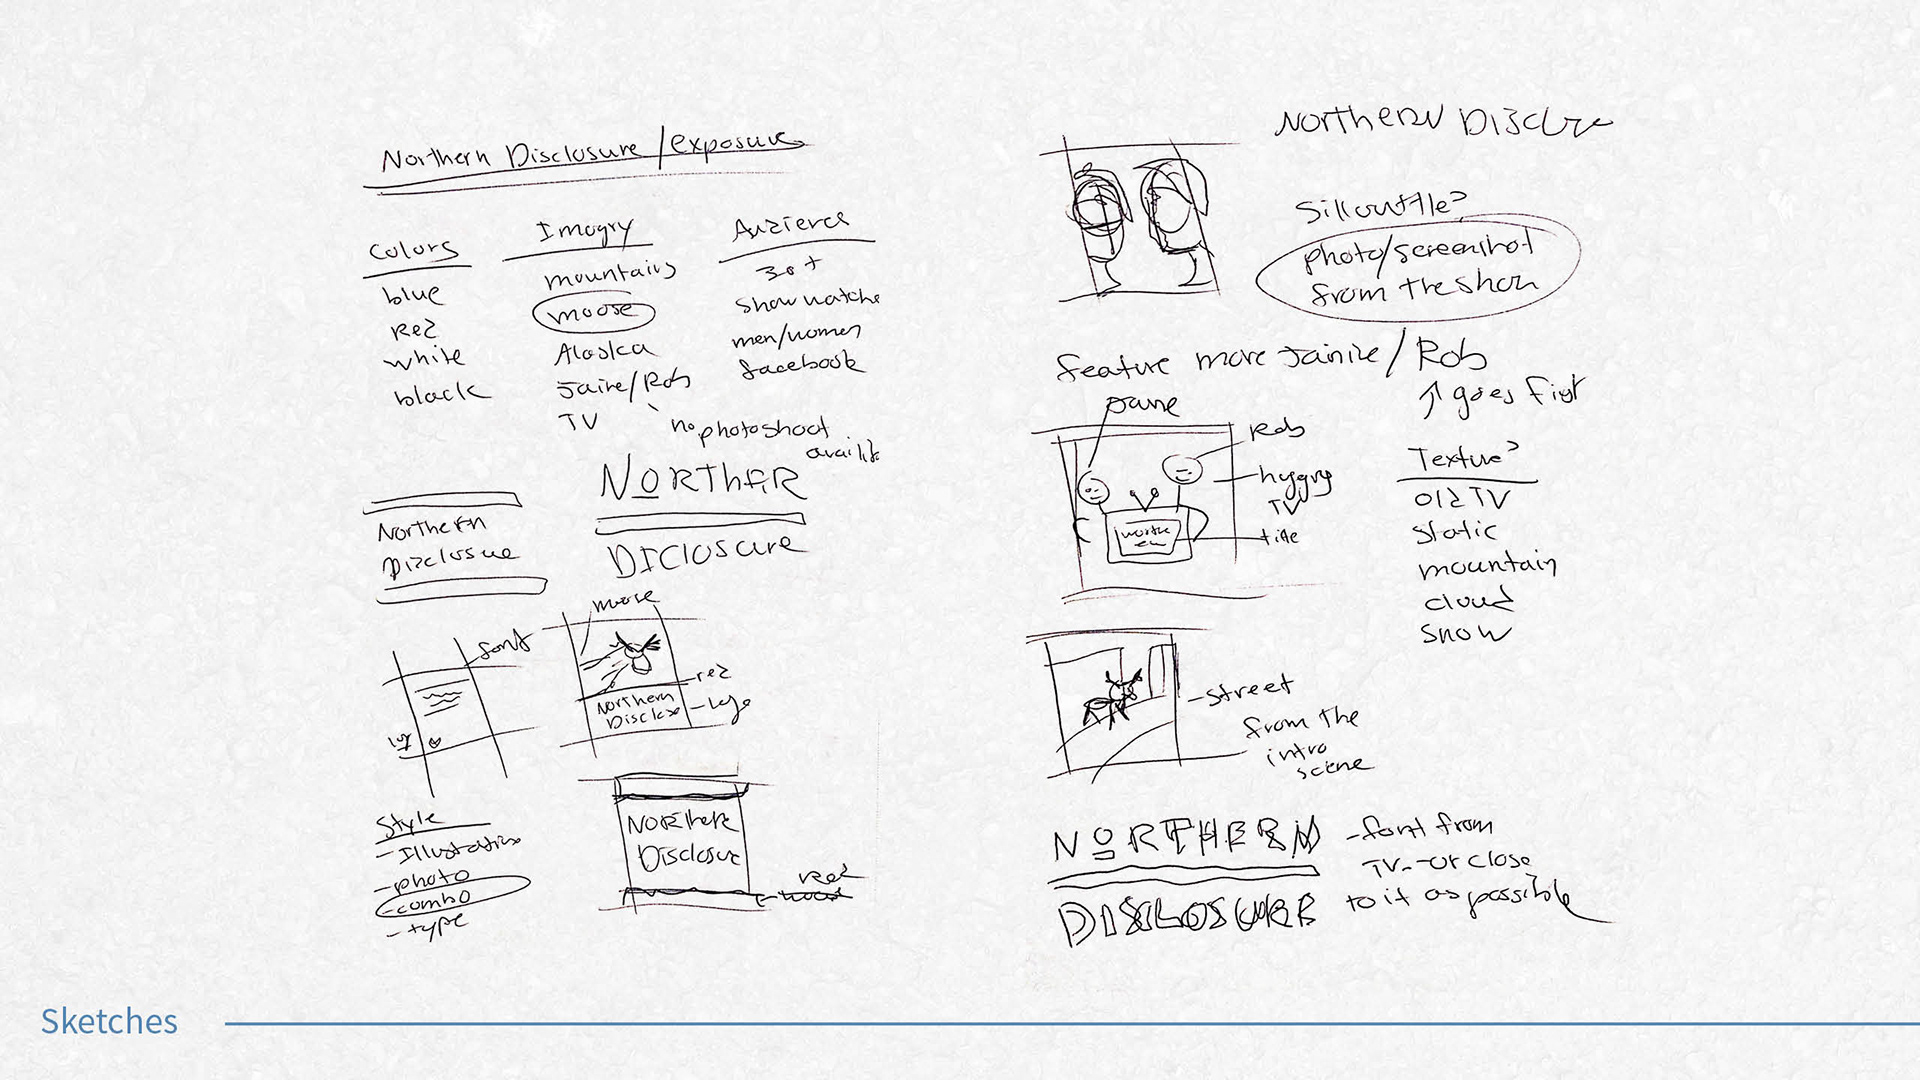 Northern Disclosure/exposure
Colors
blue
Red
white
black
Imagry
mountains
moose
Alaska
Janine/Rob
TV
no photoshoot
availib
Audience
30+
show watche
men/women
facebook
Northern
Disclosue
NORTHER
DICLOSURE
font
moose
red
Northern
Disclose
- logo
Style
- Illustration
- photo
- combo
- type
Northern
Disclosur
Red
Northern Disclure
Sillouttle?
photo/screenshot
from the show
Feature more Janine/Rob
↑ goes first
Rob
hugging
TV
title
Texture?
old TV
static
mountain
cloud
snow
- street
from the
intro
scene
NORTHERN
DISCLOSURE
- font from
TV - or close
to it as possible
Sketches